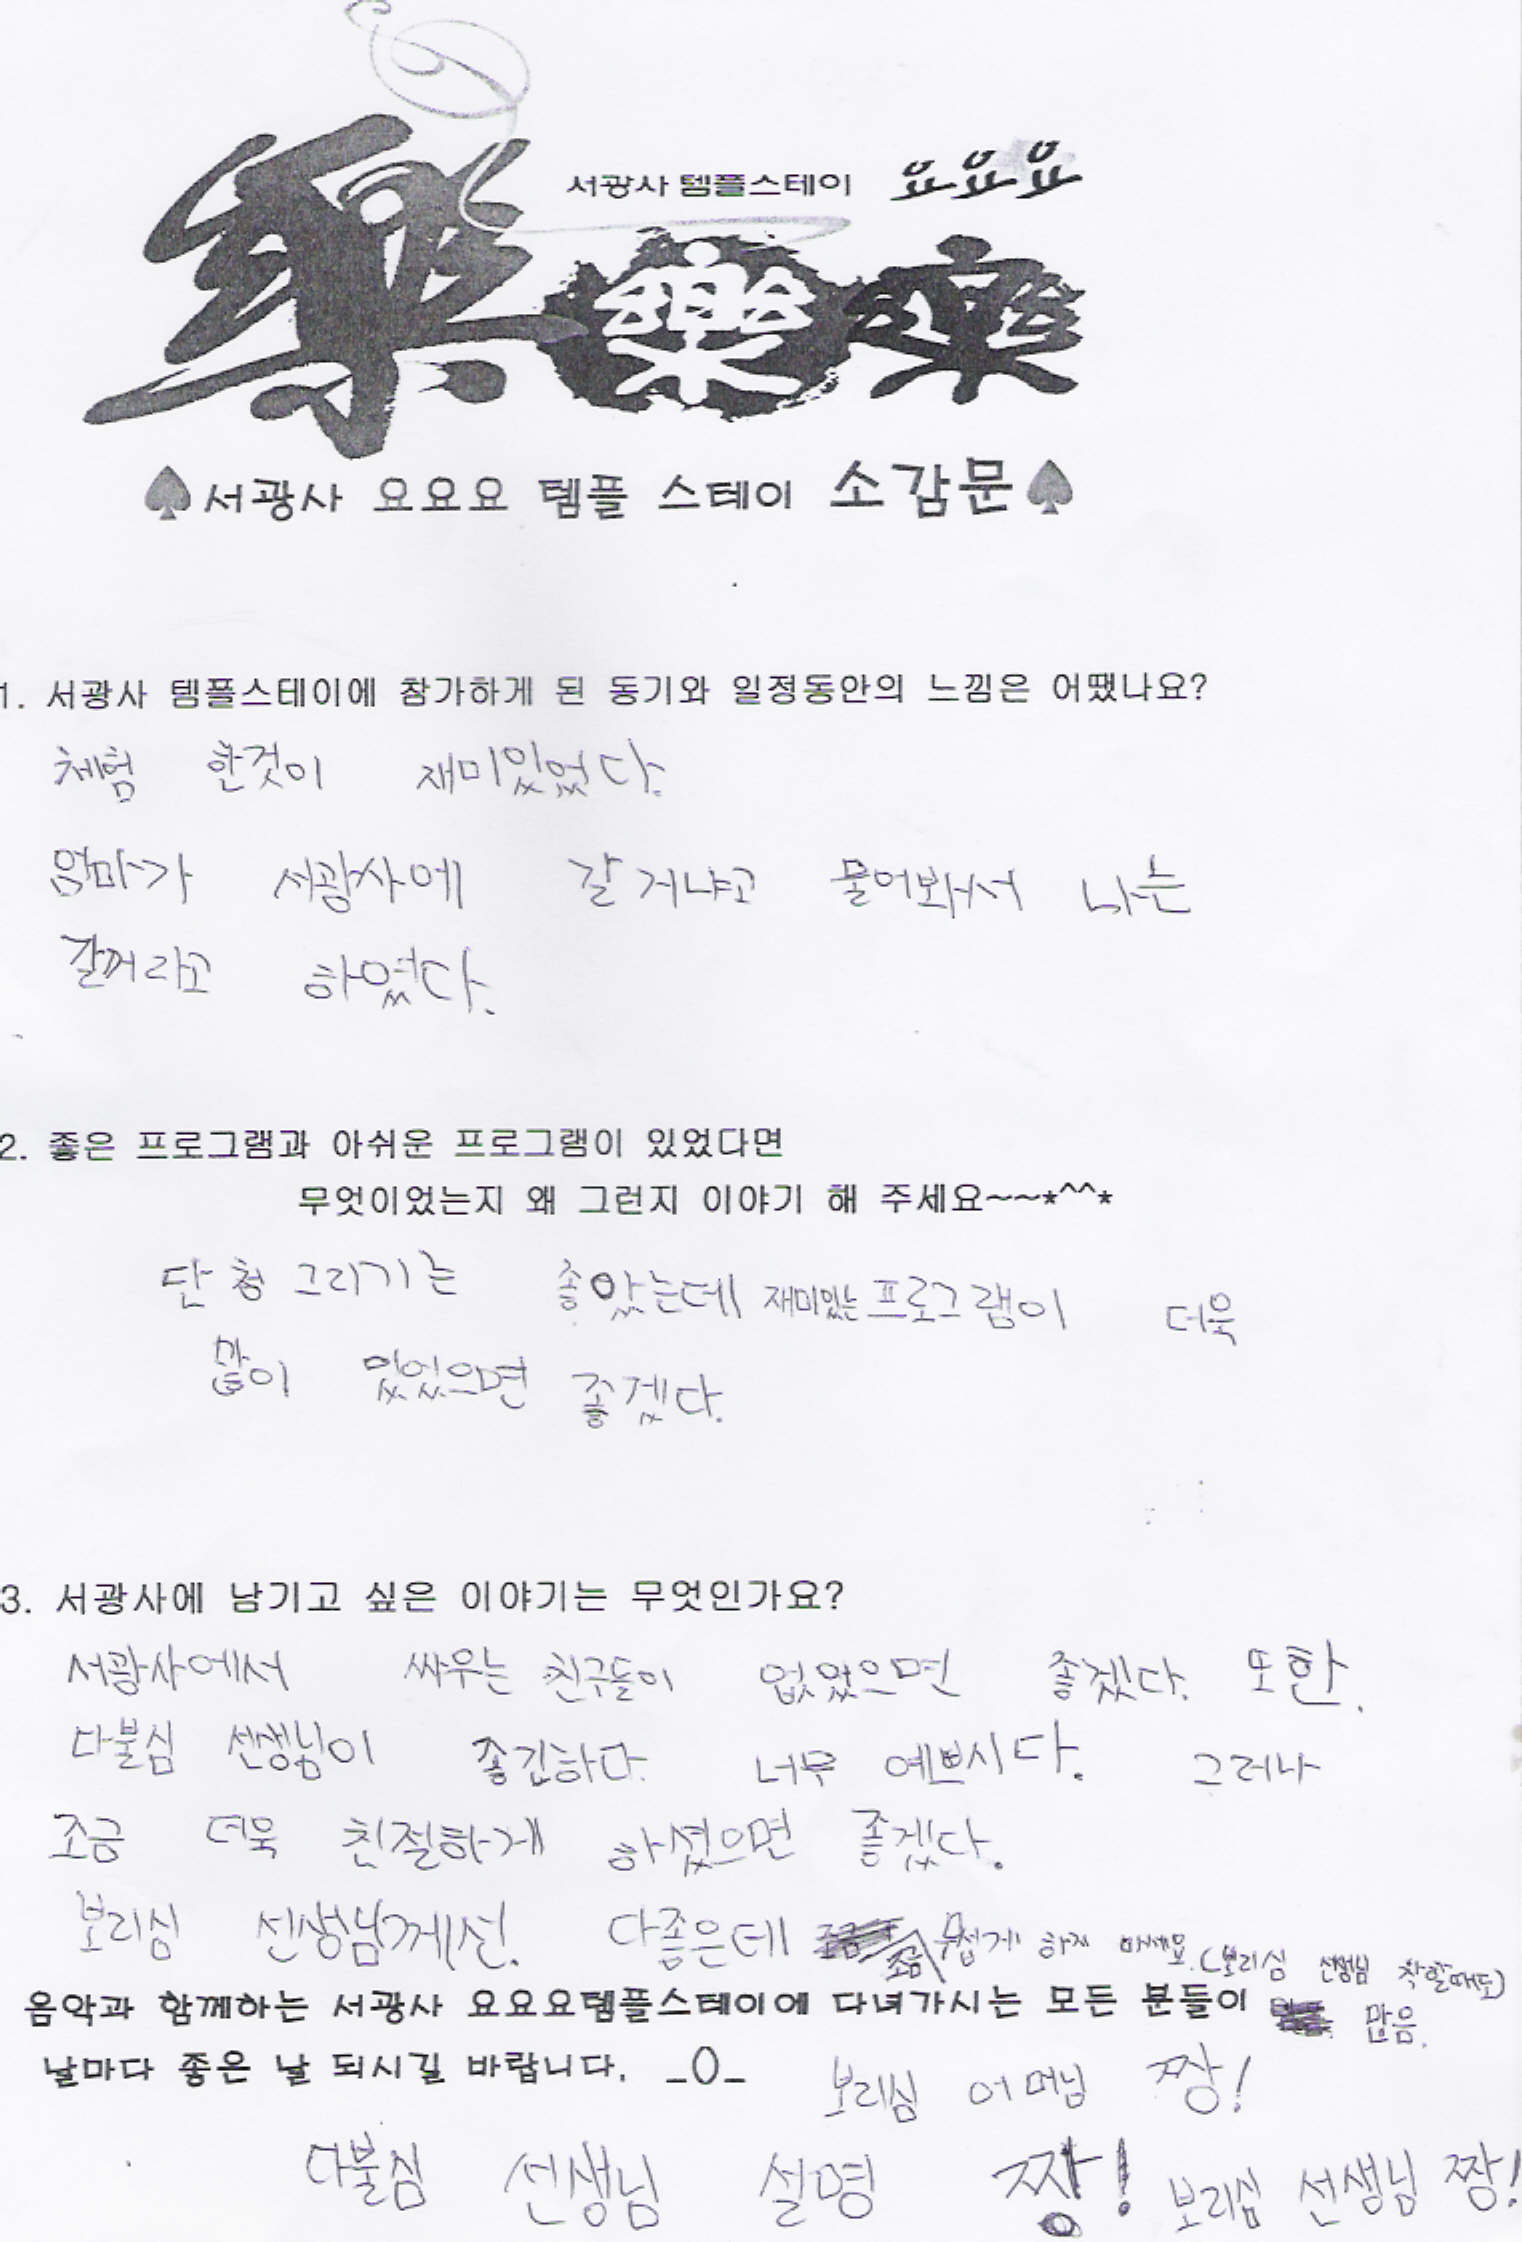 서광사 템플스테이 요요요
樂樂樂
♠서광사 요요요 템플 스테이 소감문♠
1. 서광사 템플스테이에 참가하게 된 동기와 일정동안의 느낌은 어땠나요?
체험 한것이 재미있었다.
엄마가 서광사에 갈거냐고 물어봐서 나는
갈꺼라고 하였다.
2. 좋은 프로그램과 아쉬운 프로그램이 있었다면
무엇이었는지 왜 그런지 이야기 해 주세요~~*^^*
단청 그리기는 좋았는데 재미있는 프로그램이 더욱
많이 있었으면 좋겠다.
3. 서광사에 남기고 싶은 이야기는 무엇인가요?
서광사에서 싸우는 친구들이 없었으면 좋겠다. 또한,
다불심 선생님이 좋긴하다. 너무 예쁘시다. 그러나
조금 더욱 친절하게 하셨으면 좋겠다.
보리심 선생님께선. 다좋은데 조금 무섭게 하지 마세요.(보리심 선생님 착할때도)
많음.
음악과 함께하는 서광사 요요요템플스테이에 다녀가시는 모든 분들이
날마다 좋은 날 되시길 바랍니다. _O_
보리심 어머님 짱!
다불심 선생님 설명 짱! 보리심 선생님 짱!